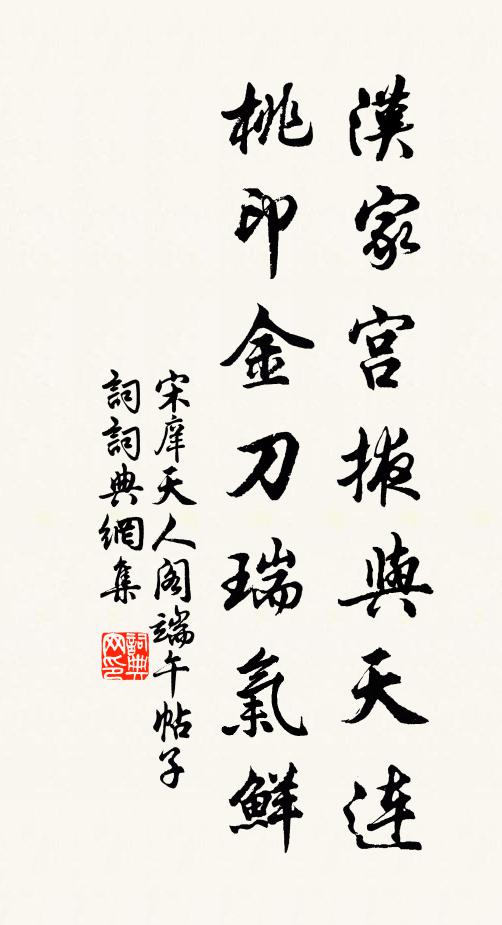 漢家宮掖與天連
桃印金刀瑞氣鮮
宋庠天人閣端午帖子
詞詞典網集
詞典網印